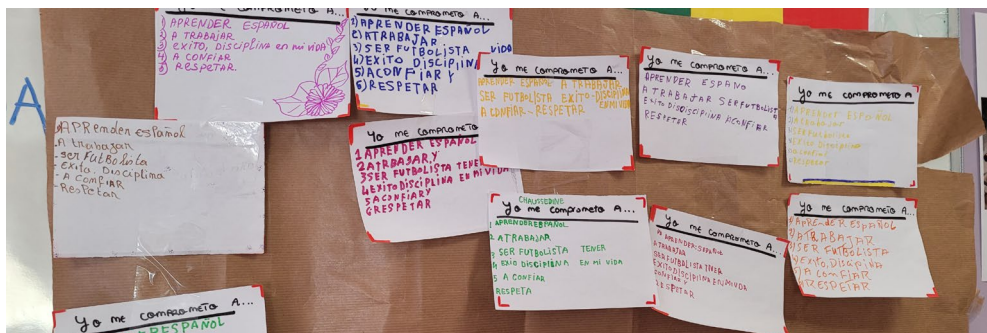 A
Yo me comprometo A...
1) APRENDER ESPAÑOL
2) A TRABAJAR
3) EXITO, DISCIPLINA EN MI VIDA
4) A CONFIAR
RESPETAR.
Yo me comprometo A...
1) APRENDER ESPAÑOL
2) ATRABAJAR
3) SER FUTBOLISTA VIDA
4) EXITO, DISCIPLINA
5) ACONFIAR Y
6) RESPETAR
Yo me comprometo A...
APRENDER ESPAÑOL A TRABAJAR
SER FUTBOLISTA EXITO-DISCIPLINA
EN MI VIDA
A CONFIAR RESPETAR
Yo me comprometo A...
APRENDER ESPAÑO
A TRABAJAR SER FUTBOLIST
EXITO DISCIPLINA ACONFIAR
RESPETAR
Yo me comprometo A
APRENDER ESPAÑOL
RESPETAR
APRenden español
A trabajar
- ser FUTBOLISTA
- EXITO. Disciplina
- A CONFIAR
- Respetar
Yo me comprometo A..
1 APRENDER ESPAÑOL
2 ATRBAJAR, Y
3 SER FUTBOLISTA TENER
4 EXITO DISCIPLINA EN MI VIDA
5 ACONFIAR Y
6 RESPETAR
CHAUSTEDINE
Yo me comprometo A...
APRENDER ESPAÑOL
2 ATRABAJAR
3 SER FUTBOLISTA TENER
4 EXIO DISCIPLINA EN MI VIDA
5 A CONFIAR
RESPETA
Yo me comprometo A...
A APRENDER ESPAÑOL
ATRABAJAR
SER FUTBOLISTA TENER
EXITO DISCIPLINA EN MI VIDA
CONFIAR Y
Yo me comprometo A...
APRENDER ESPAÑOL
ATRABAJAR
SER FUTBOLISTA
EXITO, DISCIPLINA
A COMFIAR
RESPETAR
Yo me comprometo A...
R ESPAÑOL